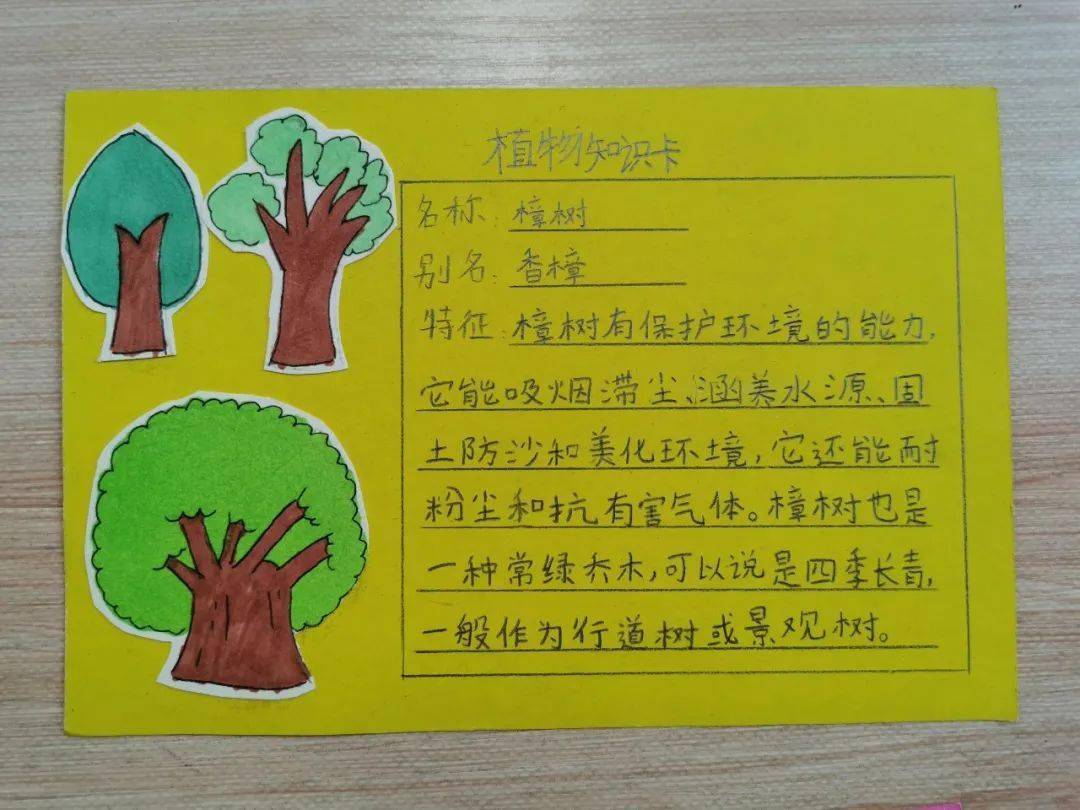 植物知识卡
名称:樟树
别名:香樟
特征:樟树有保护环境的能力,
它能吸烟滞尘、涵养水源、固
土防沙和美化环境,它还能耐
粉尘和抗有害气体。樟树也是
一种常绿乔木,可以说是四季长青,
一般作为行道树或景观树。